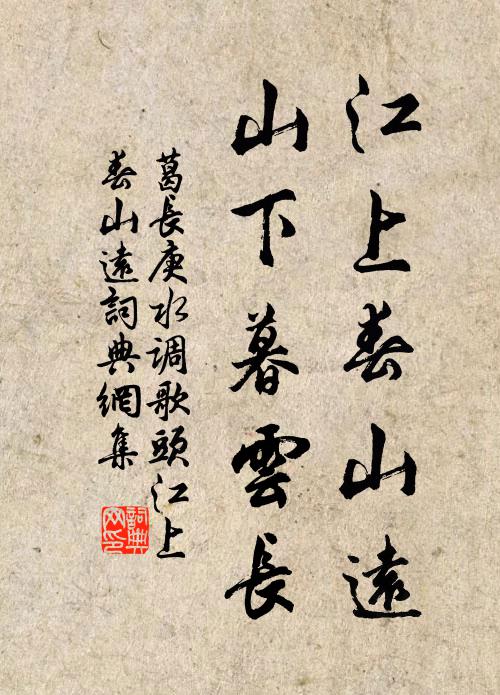 江上春山遠
山下暮雲長
葛長庚水调歌頭江上
春山遠詞典網集
詞典网印